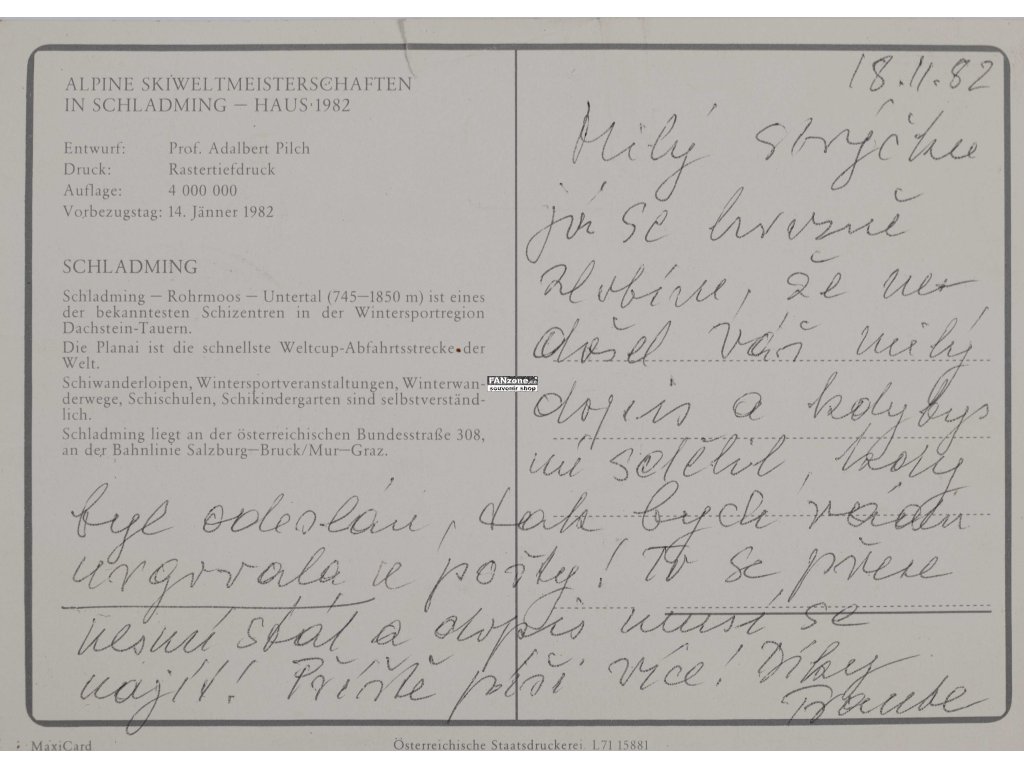 ALPINE SKIWELTMEISTERSCHAFTEN
IN SCHLADMING – HAUS·1982
Entwurf: Prof. Adalbert Pilch
Druck: Rastertiefdruck
Auflage: 4 000 000
Vorbezugstag: 14. Jänner 1982
SCHLADMING
Schladming – Rohrmoos – Untertal (745–1850 m) ist eines
der bekanntesten Schizentren in der Wintersportregion
Dachstein-Tauern.
Die Planai ist die schnellste Weltcup-Abfahrtsstrecke der
Welt.
Schiwanderloipen, Wintersportveranstaltungen, Winterwan-
derwege, Schischulen, Schikindergarten sind selbstverständ-
lich.
Schladming liegt an der österreichischen Bundesstraße 308,
an der Bahnlinie Salzburg–Bruck/Mur–Graz.
18.11.82
Milý strýčku
já se hrozně
zlobím, že ne-
došel váš milý
dopis a kdybys
mi sdělil, kdy
byl odeslán, tak bych ráda
urgovala u pošty! To se přece
nesmí stát a dopis musí se
najít! Příště píši více! Díky
FANzone.cz
souvenir shop
MaxiCard
Österreichische Staatsdruckerei. L71 15881